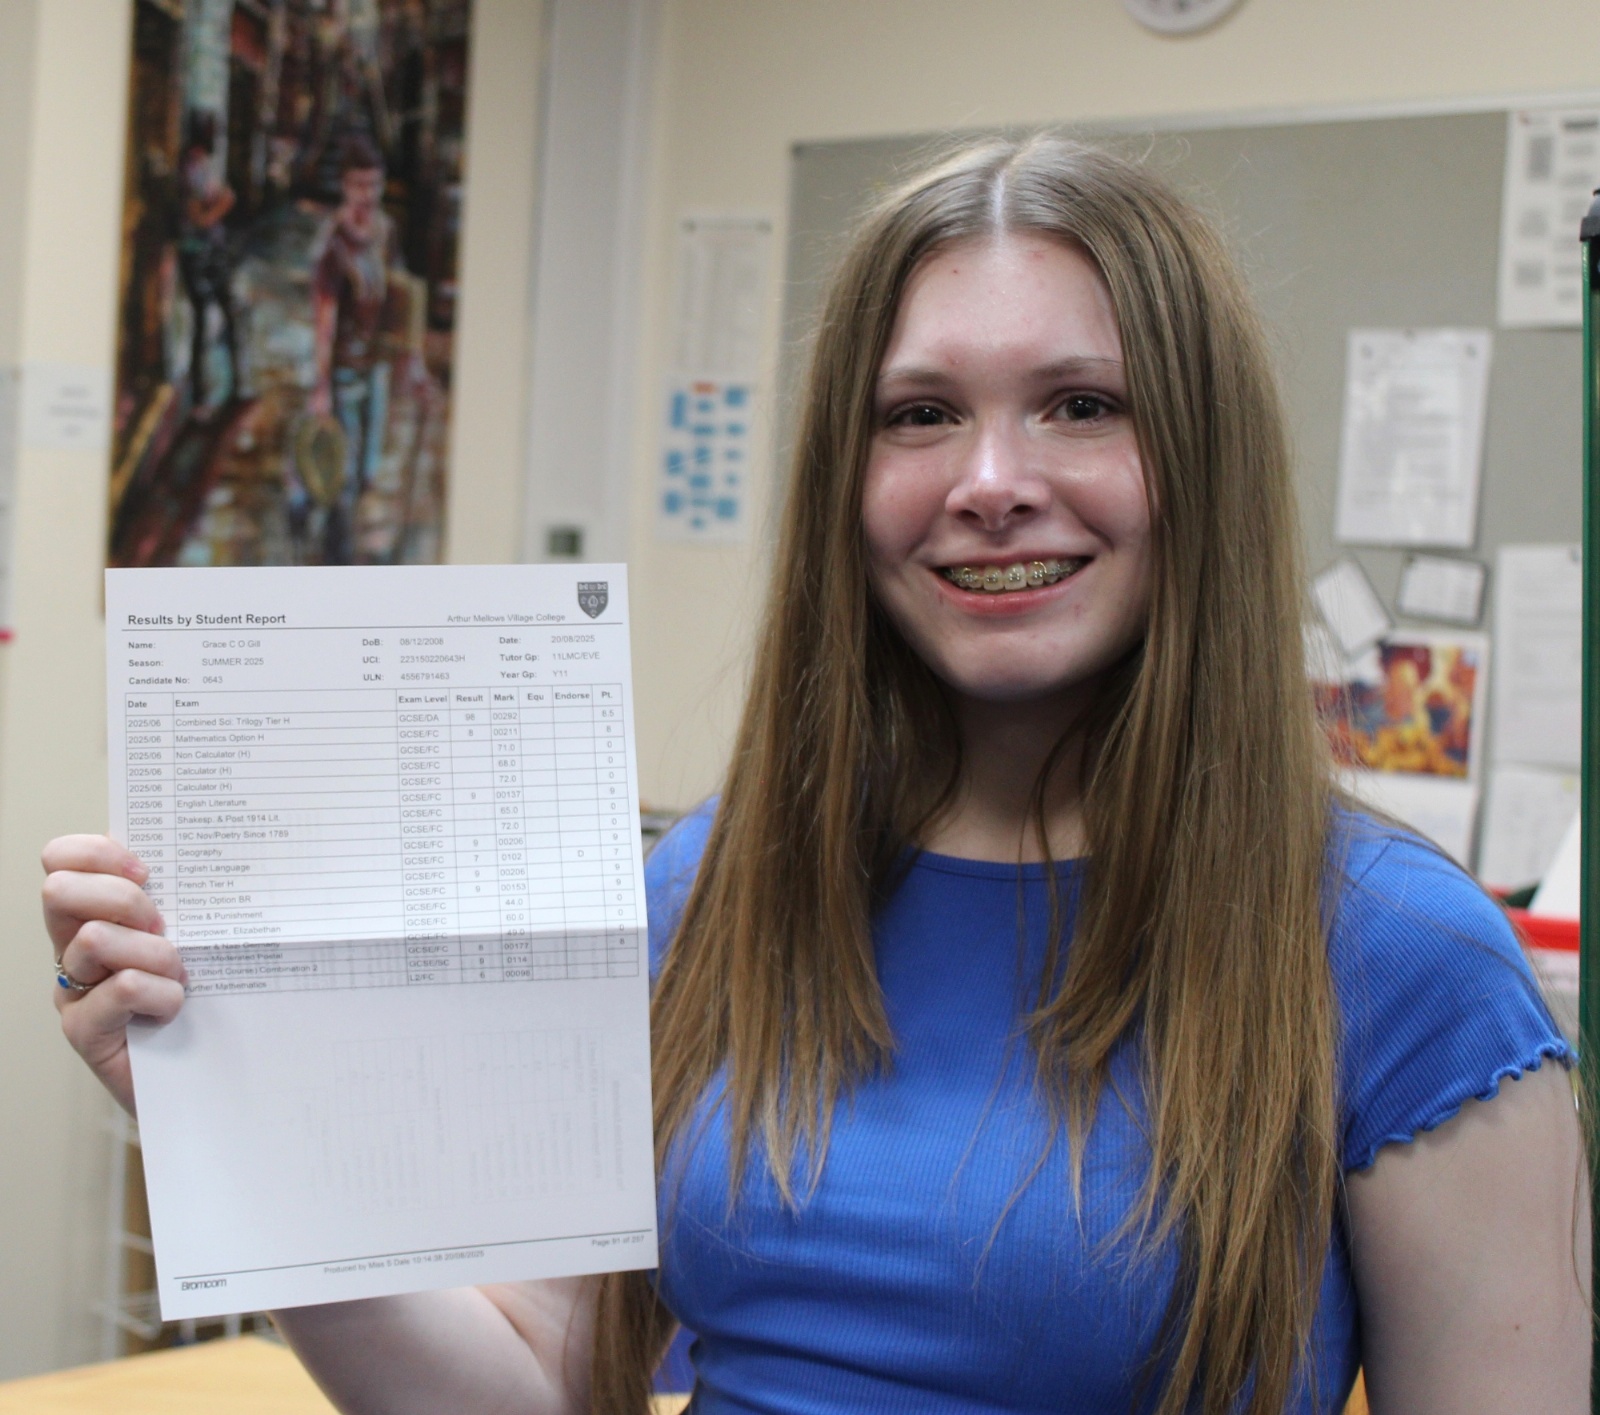 Results by Student Report
Arthur Mellows Village College
Name: Grace C O Gill DoB: 08/12/2008 Date: 20/08/2025
Season: SUMMER 2025 UCI: 223150220643H Tutor Gp: 11LMC/EVE
Candidate No: 0643 ULN: 4556791463 Year Gp: Y11
Date Exam Exam Level Result Mark Equ Endorse Pt.
2025/06 Combined Sci: Trilogy Tier H GCSE/DA 98 00292 8.5
2025/06 Mathematics Option H GCSE/FC 8 00211 8
2025/06 Non Calculator (H) GCSE/FC 71.0 0
2025/06 Calculator (H) GCSE/FC 68.0 0
2025/06 Calculator (H) GCSE/FC 72.0 0
2025/06 English Literature GCSE/FC 9 00137 9
2025/06 Shakesp. & Post 1914 Lit. GCSE/FC 65.0 0
2025/06 19C Nov/Poetry Since 1789 GCSE/FC 72.0 0
025/06 Geography GCSE/FC 9 00206 9
5/06 English Language GCSE/FC 7 0102 D 7
5/06 French Tier H GCSE/FC 9 00206 9
06 History Option BR GCSE/FC 9 00153 9
Crime & Punishment GCSE/FC 44.0 0
Superpower, Elizabethan GCSE/FC 60.0 0
Weimar & Nazi Germany GCSE/FC 49.0 0
Drama-Moderated Postal GCSE/FC 8 00177 8
(Short Course) Combination 2 GCSE/SC 9 0114
Further Mathematics L2/FC 6 00096
Produced by Miss S Date 20/08/2025 Page 91 of 257
Bromcom